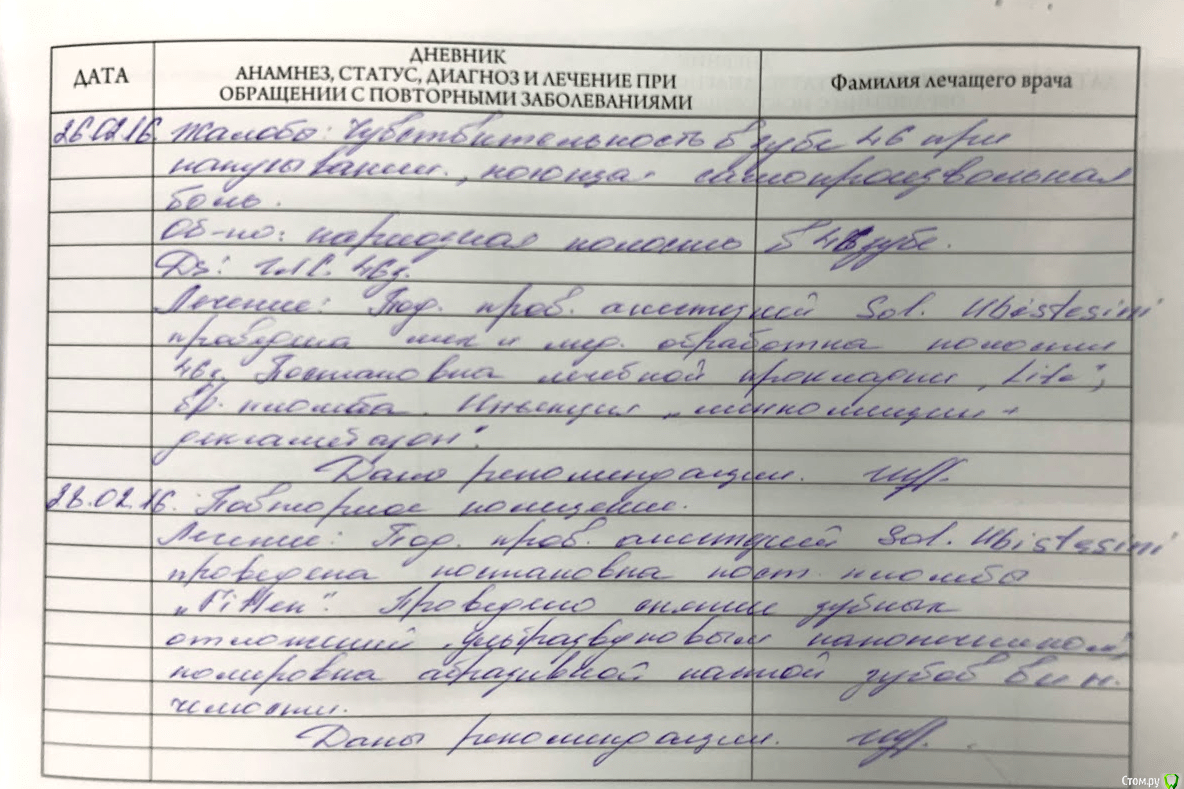 ДАТА
ДНЕВНИК
АНАМНЕЗ, СТАТУС, ДИАГНОЗ И ЛЕЧЕНИЕ ПРИ
ОБРАЩЕНИИ С ПОВТОРНЫМИ ЗАБОЛЕВАНИЯМИ
Фамилия лечащего врача
26.02.16. Жалобы: Чувствительность в зубе 46 при
накусывании, ноющая самопроизвольная
боль.
Об-но: кариозная полость в 46 зубе.
Дз: 46з.
Лечение: Под. пров. анестезией Sol. Ubistesini
проведена мех и мед. обработка полости
46з. Постановка лечебной прокладки „Life",
вр. пломба. Инъекция „линкомицин +
дексаметазон".
Дано рекомендации.
28.02.16. Повторное посещение.
Лечение: Под. пров. анестезией Sol. Ubistesini
проведена постановка пост. пломбы
Проведено снятие зубных
отложений „ультразвуковым наконечником",
полировка абразивной пастой зубов в и н.
челюсти.
Даны рекомендации.
Стом.ру